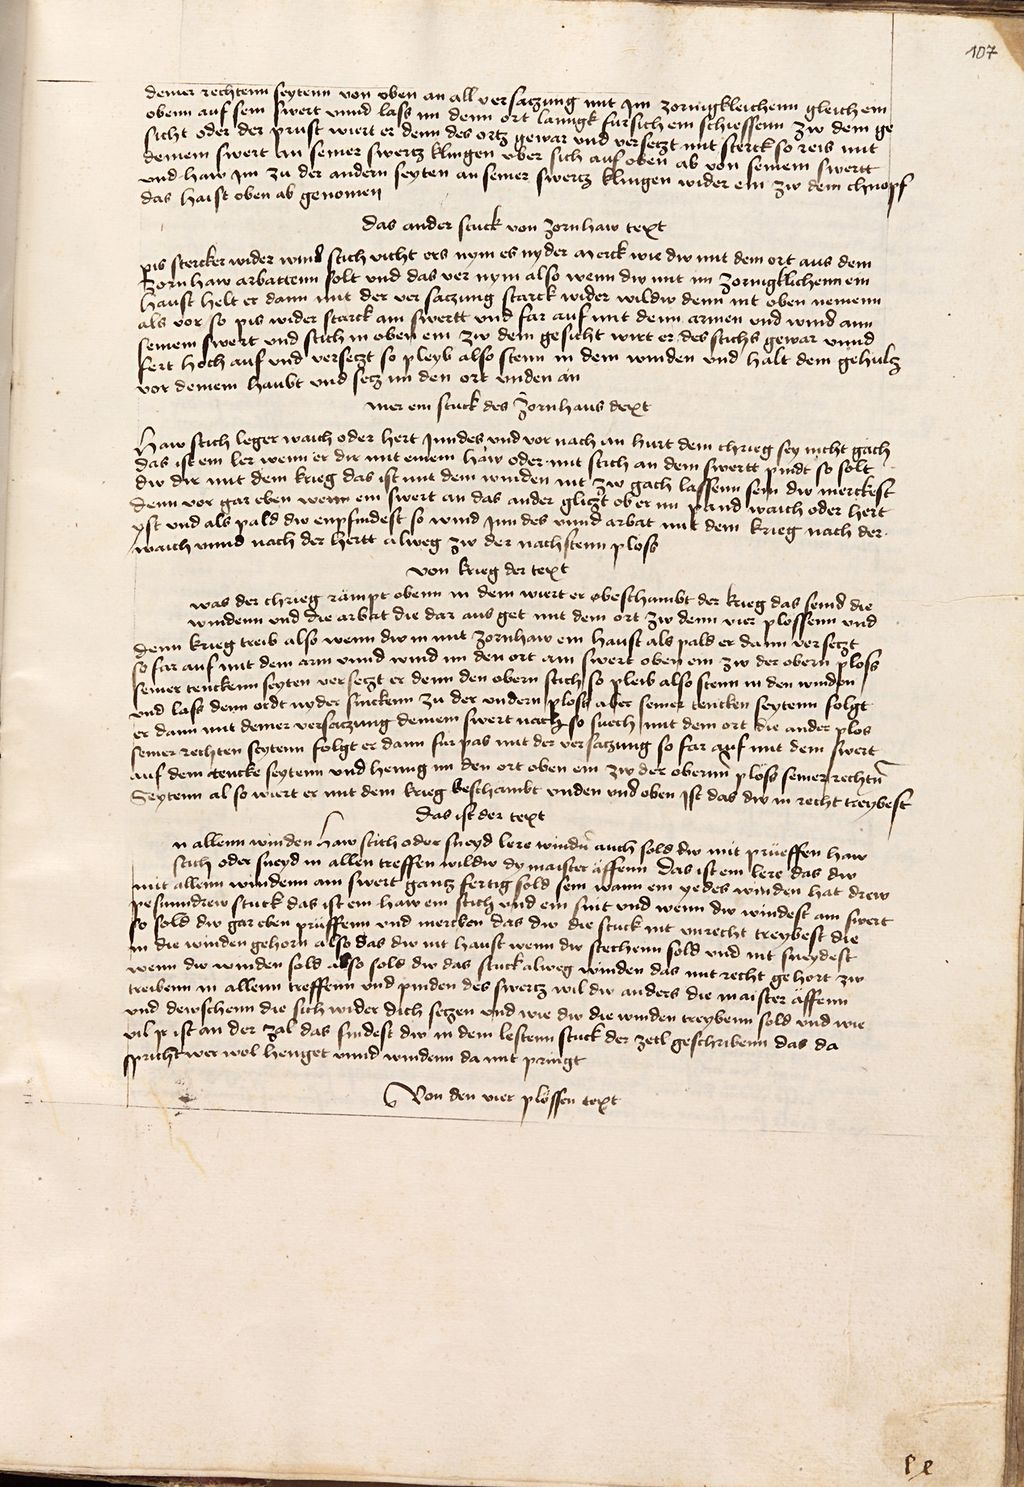 107
deiner rechtenn seytenn von oben an all versaczung mit Jm zornigkleichenn gleich ein
obenn auf sein swert vnnd lass im denn ort lanngk fursich ein schiessenn zw dem ge
sicht oder der prust wiert er denn des ortz gewar vnd versetzt mit sterck so reis mit
deinem swert an seiner swertz klingen vber sich auf oben ab von seinem swertt
vnd haw Jm zu der andern seyten an seiner swertz klingen wider ein zw dem chnopf
das haist oben ab genomen
das ander stuck von zornhaw text
pis stercker wider wind stich vicht ers nym es nyder merck wie dw mit dem ort aus dem
zornhaw arbattenn solt vnd das ver nym also wenn dw mit im zornigklichenn ein
haust helt er dann mit der ver saczung starck wider wildw denn nit oben nemenn
als vor so pis wider starck am swertt vnd far auf mit denn armen vnd wind ann
seinem swert vnd stich in oben ein zw dem gesicht wirt er des stichs gewar vnnd
fert hoch auf vnd versetzt so pleyb also stenn in dem winden vnd halt dem gehulz
vor deinem haubt vnd setz im den ort vnden an
mer ein stuck des zornhaus dext
Haw stich leger waich oder hert Jnndes vnd vor nach an hurt dein chrieg sey nicht gach
das ist ein ler wenn er dir mit einem haw oder mit stich an dem swertt pindt so solt
dw dir mit dem krieg das ist mit dem winden nit zw gach lassenn sein dw merckest
denn vor gar eben wenn ein swert an das ander glitzt ob er im pand waich oder hert
yst vnd als pald dw enpfindest so wind Jnn des vnnd arbat mit dem krieg nach der
waich vnnd nach der hertt alweg zw der nachstenn ploss
von krieg der text
was der chrieg rämpt obenn in dem wiert er obeschambt der krieg das seind die
windenn vnd die arbat die dar aus get mit dem ort zw denn vier plossenn vnd
denn krieg treib also wenn dw in mit zornhaw ein haust als pald er dann versetzt
so far auf mit dem arm vnnd wind im den ort am swert oben ein zw der obern ploss
seiner tenckenn seyten versetzt er denn den obern stich so pleib also stenn in den winden
vnd lass denn ordt nyder sinckenn zu der vndern ploss aber seiner tencken seytenn folgt
er dann mit deiner versaczung deinem swert nach so suech mit dem ort die ander plos
seiner rechten seytenn folgt er dann fur pas mit der versaczung so far auf mit dem swert
auf dein tencke seytenn vnd heng im den ort oben ein zw der obernn plöss seiner rechtn
Seytenn al so wiert er mit dem krieg beschambt vnden vnd oben Jst das dw in recht treybest
das ist der text
n allenn winden haw stich oder sneyd lere windn auch sold dw mit prüeffen haw
stich oder sneyd in allen treffen wildw dy maister äffenn Das ist ein lere das dw
mit allenn windenn am swert gantz fertig sold sein wann ein yedes winden hat drew
pesunndrew stuck das ist ein haw ein stich vnd ein snit vnd wenn dw windest am swert
so sold dw gar eben prüffenn vnd mercken das dw die stuck nit vnrecht treybest die
in die winden gehorn also das dw nit haust wenn dw stechenn sold vnd nit sneydest
wenn dw winden sold also sold dw das stuck alweg winden das mit recht gehort zw
treibenn in allenn treffenn vnd pinden des swertz wil dw anders die maister äffenn
vnd dewschenn die sich wider dich setzen vnd wie dw die winden treybenn sold vnd wie
vil ir ist an der zal das findest dw in dem lestenn stuck der zetl geschribenn das da
spricht wer wol henget vnnd windenn da mit pringt
Von den vier plössen text